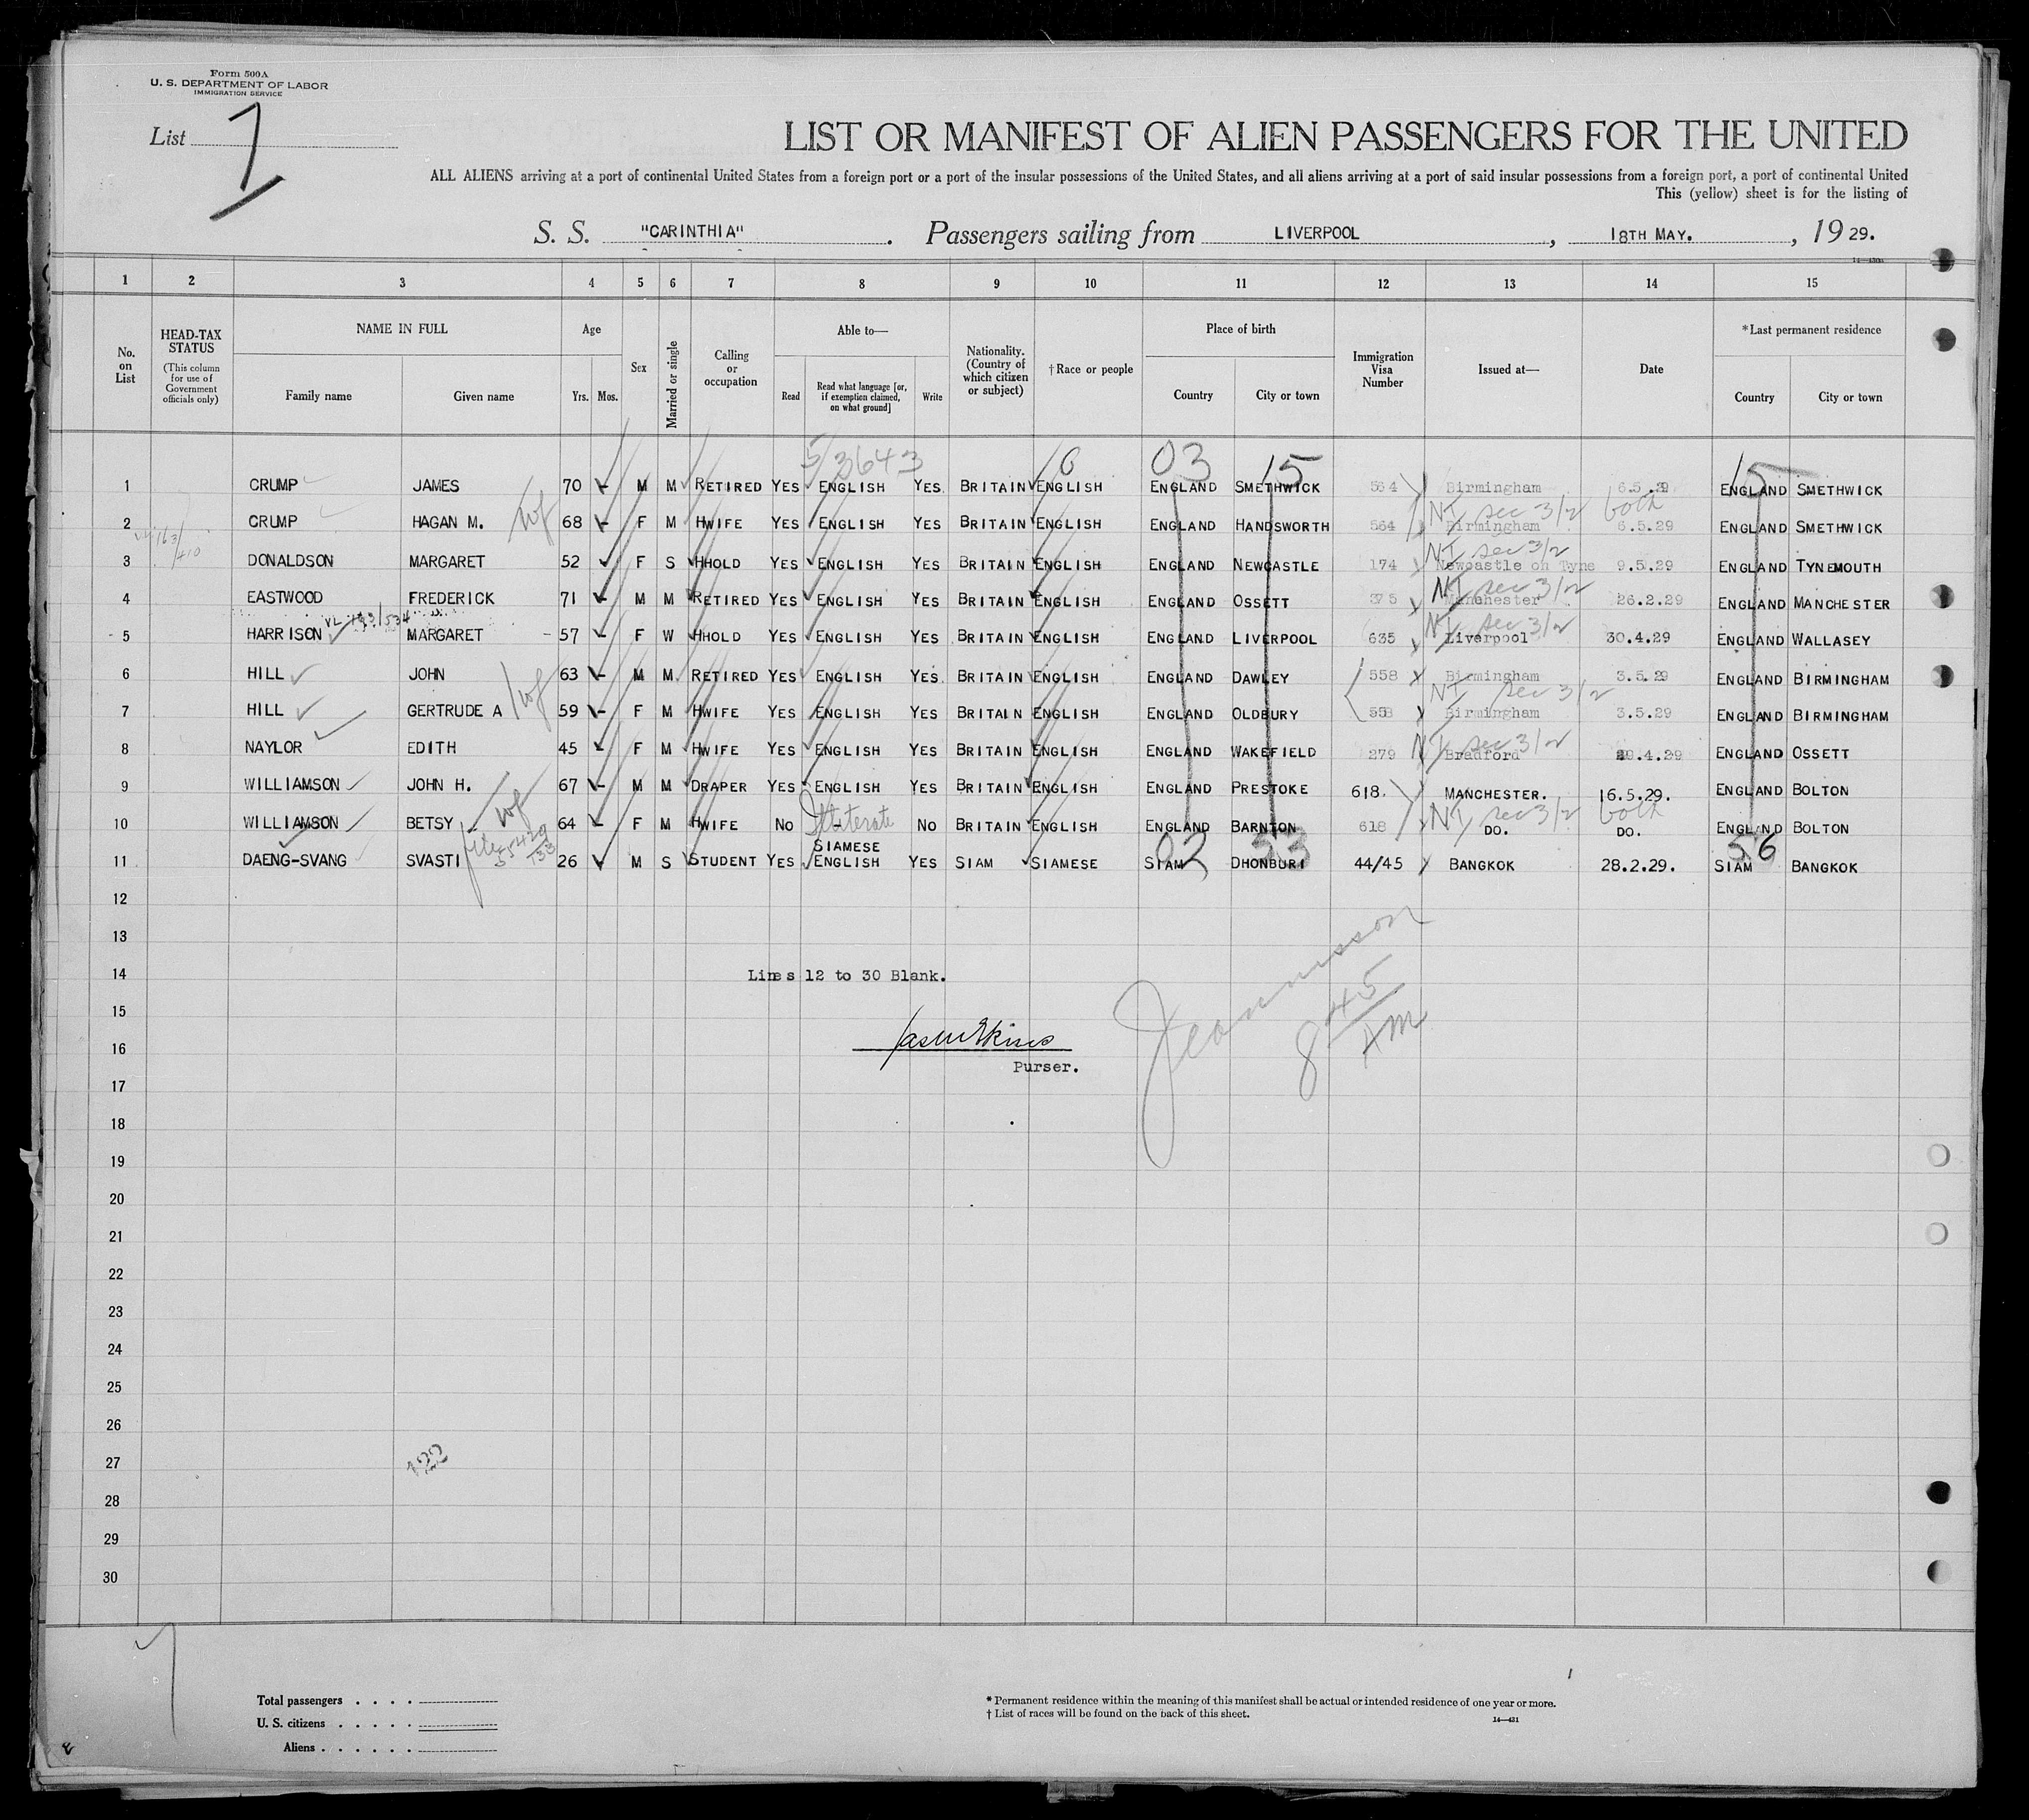 Form 500A
U. S. DEPARTMENT OF LABOR
IMMIGRATION SERVICE
List 7
LIST OR MANIFEST OF ALIEN PASSENGERS FOR THE UNITED
ALL ALIENS arriving at a port of continental United States from a foreign port or a port of the insular possessions of the United States, and all aliens arriving at a port of said insular possessions from a foreign port, a port of continental United
This (yellow) sheet is for the listing of
S. S. "CARINTHIA". Passengers sailing from LIVERPOOL, 18TH MAY., 1929.
1 2 3 4 5 6 7 8 9 10 11 12 13 14 15
No. on List
HEAD-TAX STATUS (This column for use of Government officials only)
NAME IN FULL Family name Given name
Age Yrs. Mos.
Sex
Married or single
Calling or occupation
Able to— Read Read what language [or, if exemption claimed, on what ground] Write
Nationality. (Country of which citizen or subject)
†Race or people
Place of birth Country City or town
Immigration Visa Number
Issued at—
Date
*Last permanent residence Country City or town
5/3643 6 03 15 15
1 CRUMP JAMES 70 - M M RETIRED YES ENGLISH YES BRITAIN ENGLISH ENGLAND SMETHWICK 564 Birmingham 6.5.29 ENGLAND SMETHWICK
NI sec 3/2 both
2 CRUMP HAGAN M. wf 68 - F M HWIFE YES ENGLISH YES BRITAIN ENGLISH ENGLAND HANDSWORTH 564 Birmingham 6.5.29 ENGLAND SMETHWICK
NI sec 3/2
3 DONALDSON MARGARET 52 F S HHOLD YES ENGLISH YES BRITAIN ENGLISH ENGLAND NEWCASTLE 174 Newcastle on Tyne 9.5.29 ENGLAND TYNEMOUTH
NI sec 3/2
4 EASTWOOD FREDERICK 71 - M M RETIRED YES ENGLISH YES BRITAIN ENGLISH ENGLAND OSSETT 375 Manchester 26.2.29 ENGLAND MANCHESTER
NI sec 3/2
5 HARRISON MARGARET 57 - F W HHOLD YES ENGLISH YES BRITAIN ENGLISH ENGLAND LIVERPOOL 635 Liverpool 30.4.29 ENGLAND WALLASEY
6 HILL JOHN 63 - M M RETIRED YES ENGLISH YES BRITAIN ENGLISH ENGLAND DAWLEY 558 Birmingham 3.5.29 ENGLAND BIRMINGHAM
NI sec 3/2
7 HILL GERTRUDE A wf 59 - F M HWIFE YES ENGLISH YES BRITAIN ENGLISH ENGLAND OLDBURY 558 Birmingham 3.5.29 ENGLAND BIRMINGHAM
NI sec 3/2
8 NAYLOR EDITH 45 - F M HWIFE YES ENGLISH YES BRITAIN ENGLISH ENGLAND WAKEFIELD 279 Bradford .4.29 ENGLAND OSSETT
9 WILLIAMSON JOHN H. 67 - M M DRAPER YES ENGLISH YES BRITAIN ENGLISH ENGLAND PRESTOKE 618. MANCHESTER. 16.5.29. ENGLAND BOLTON
NI sec 3/2 both
10 WILLIAMSON BETSY wf 64 - F M HWIFE NO Illiterate NO BRITAIN ENGLISH ENGLAND BARNTON 618 DO. DO. ENGLAND BOLTON
SIAMESE 02 53 56
11 DAENG-SVANG SVASTI 26 M S STUDENT YES ENGLISH YES SIAM SIAMESE SIAM DHONBURI 44/45 BANGKOK 28.2.29. SIAM BANGKOK
12
13
14 Lines 12 to 30 Blank.
15
16
Purser.
8 45 AM
17
18
19
20
21
22
23
24
25
26
27 122
28
29
30
Total passengers . . . .
U. S. citizens . . . . .
Aliens . . . . . .
* Permanent residence within the meaning of this manifest shall be actual or intended residence of one year or more.
† List of races will be found on the back of this sheet.
14—431